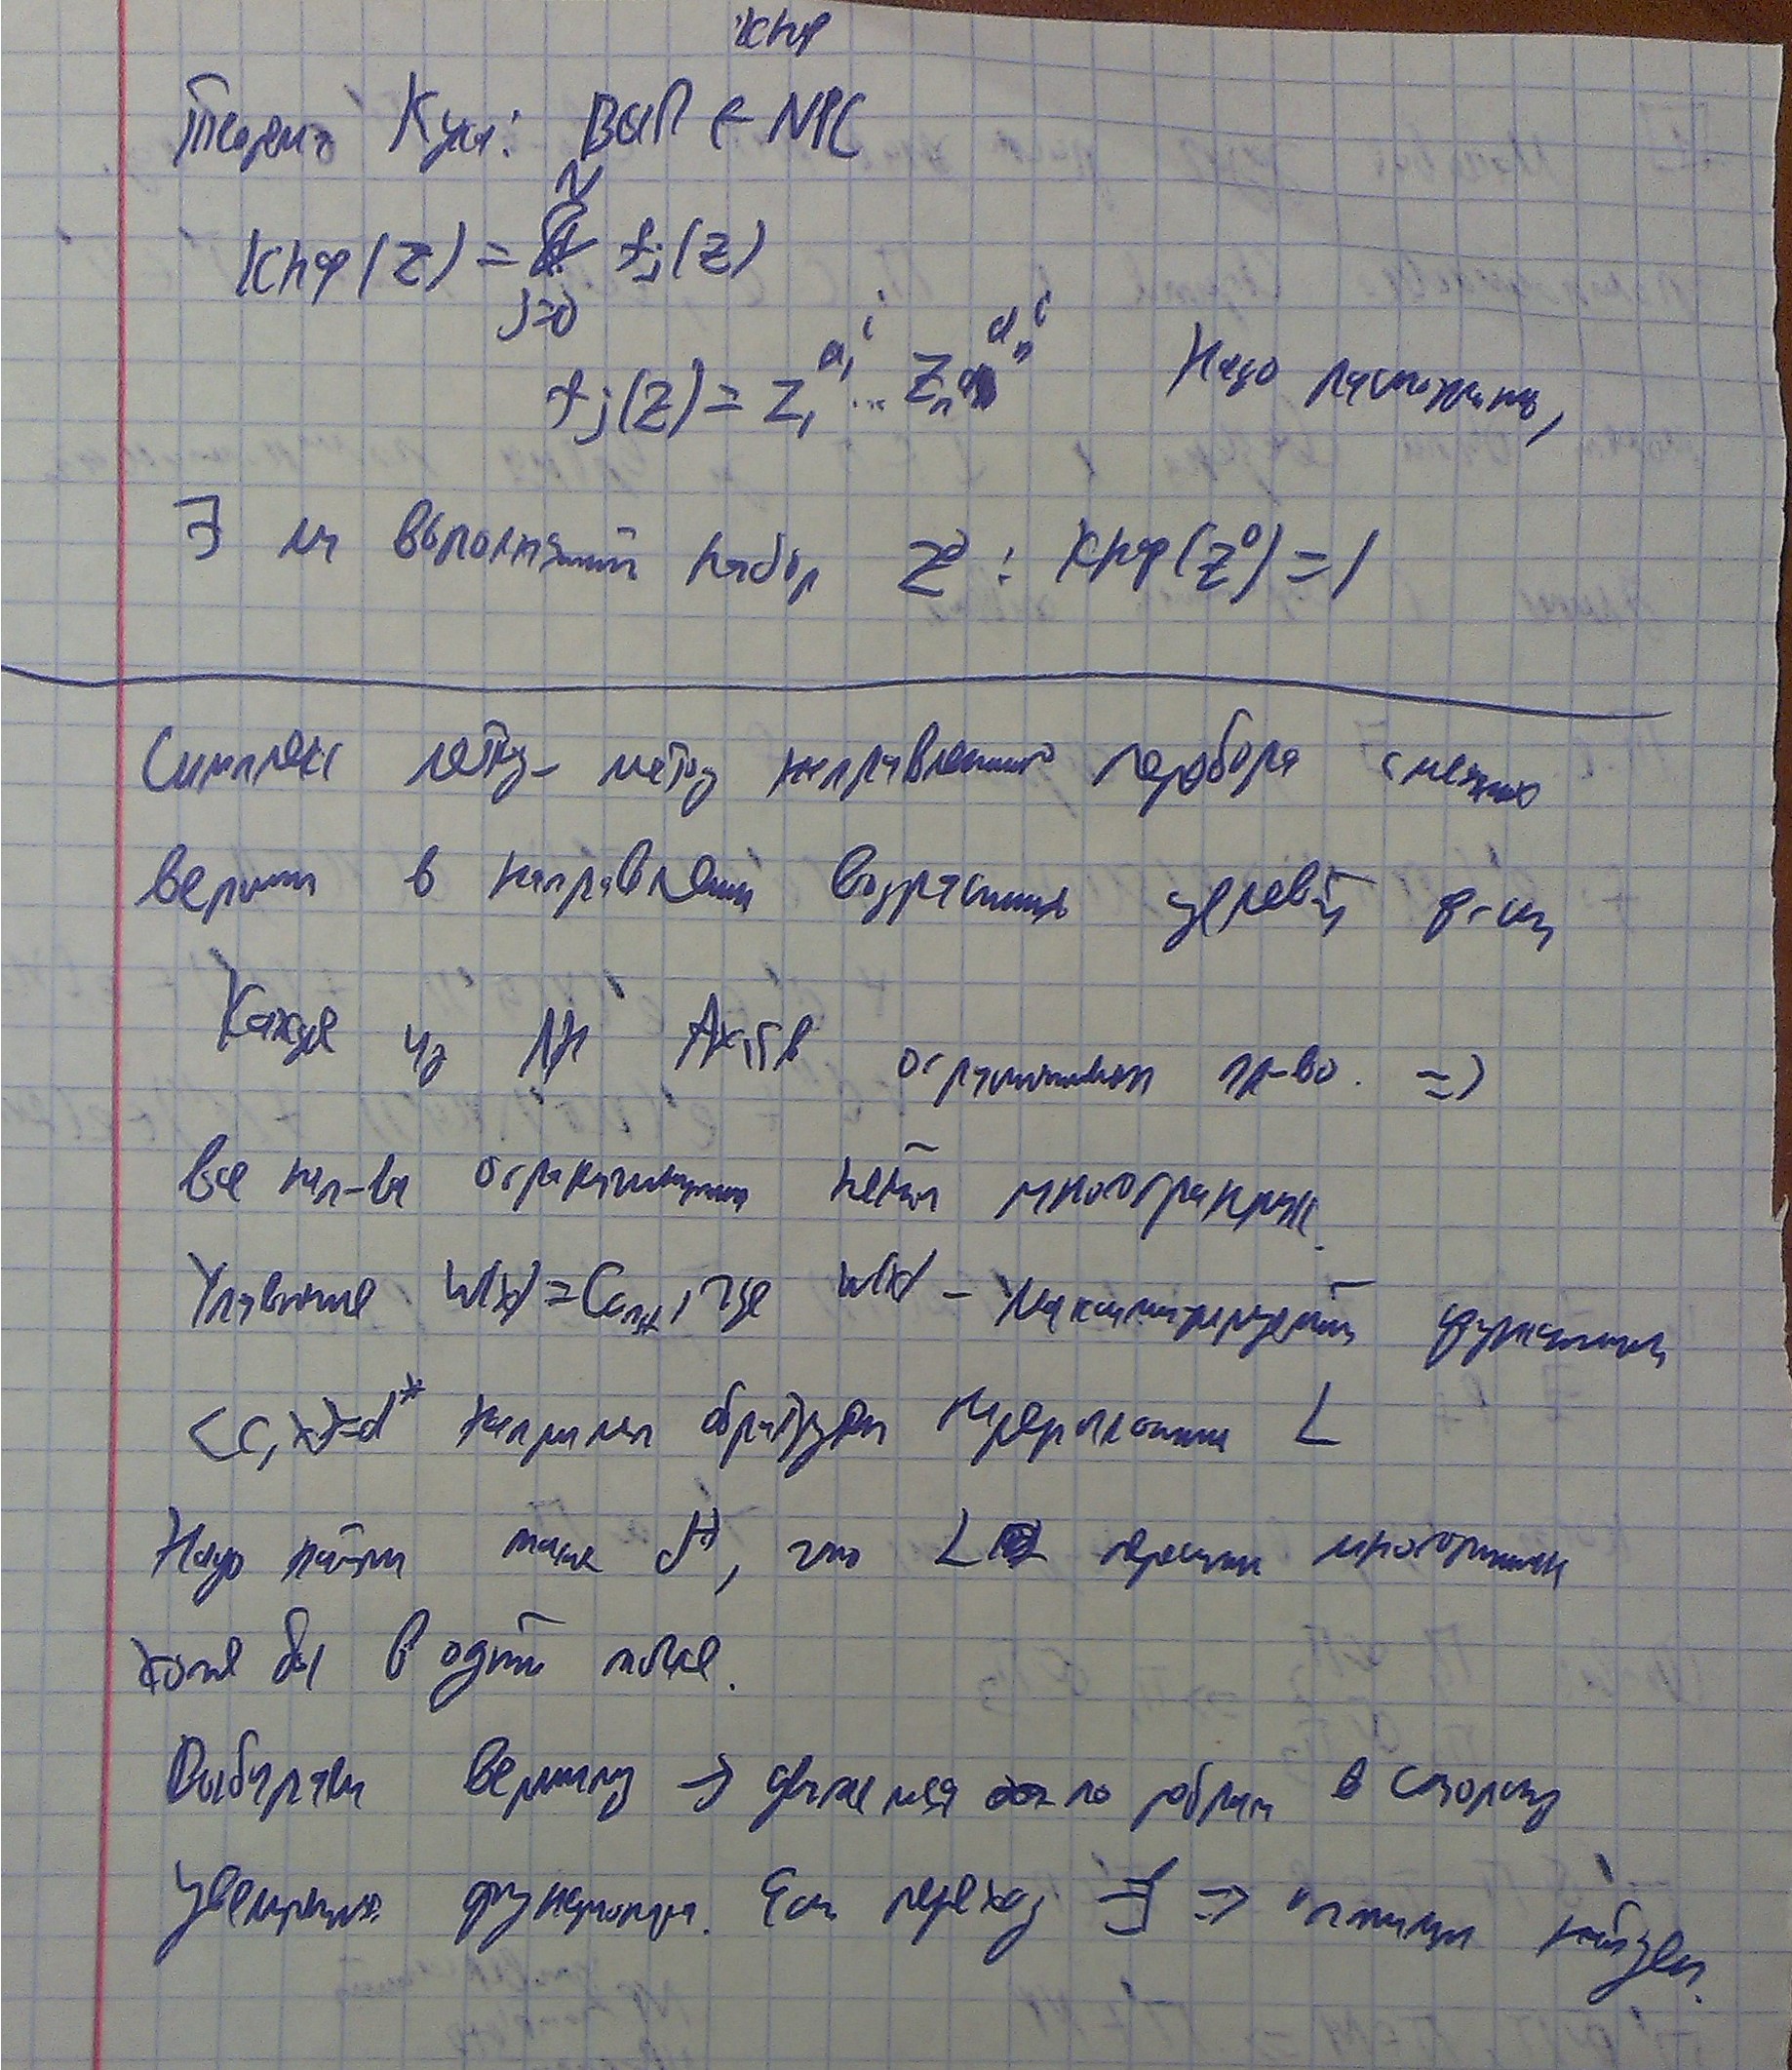 кнф
Теорема Кука: ВЫП ∈ NPC
кнф(z) = & j=0 N fj(z)
fj(z) = z₁^α₁ⁱ ... zₙ^αₙⁱ Надо
∃ ли выполняющий набор z⁰ : кнф(z⁰) = 1
Симплекс метод – метод направленного перебора смежных
вершин в направлении возрастания целевой ф-ции
Каждое из Ax ≤ b ограничивает пр-во. =>
все нер-ва ограничивают некий многогранник.
Уравнение W(x) = Const, где W(x) – максимизируемый функционал
<c, x> = d* например образует гиперплоскость L
Надо найти такое d*, что L пересечи многогранник
хотя бы в одной точке.
Выбираем вершину → движемся по рёбрам в сторону
увеличения функционала. Если переход ∃ =>